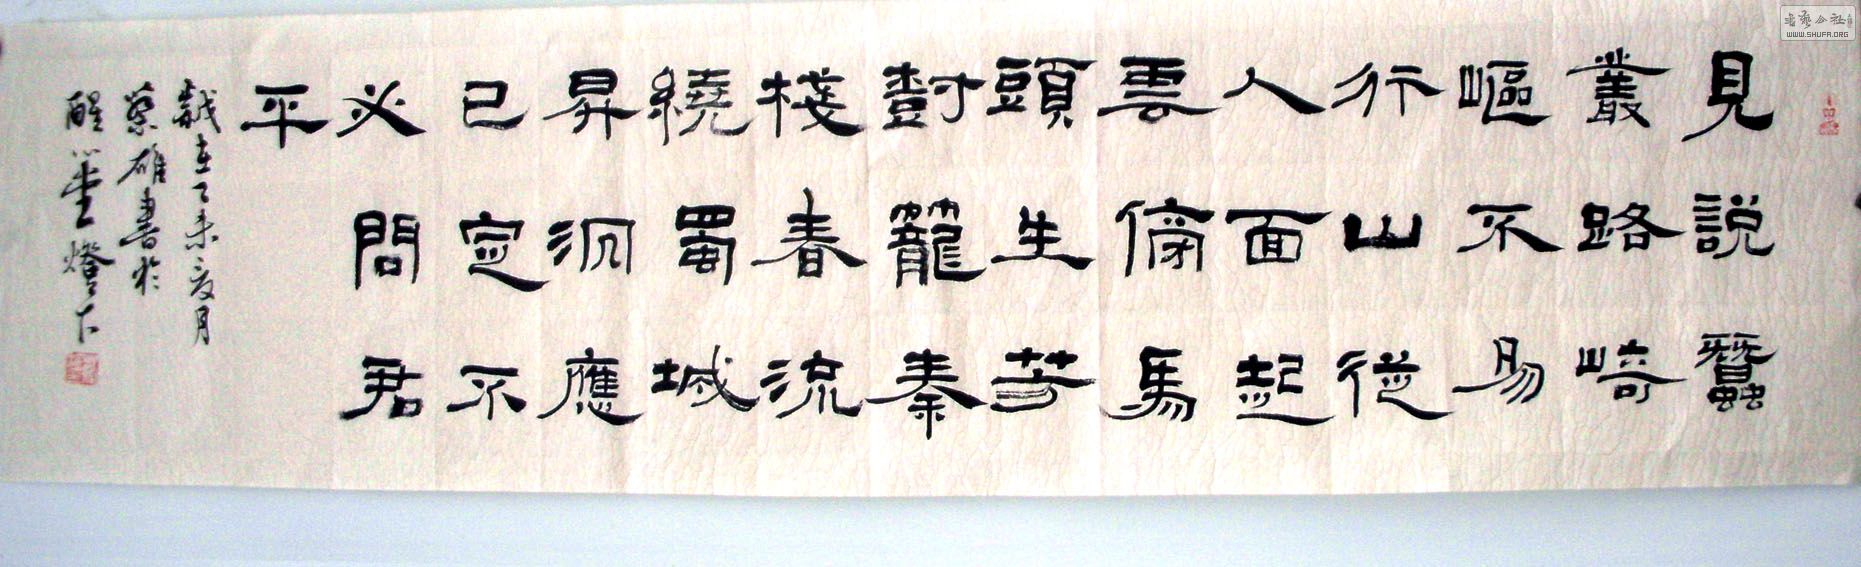 見說蠶
叢路崎
嶇不易
行山從
人面起
雲傍馬
頭生芳
樹籠秦
棧春流
繞蜀城
昇沉應
已定不
必問君
平
歲在乙未夏月
蔡雄書於
醒心堂燈下
WWW.SHUFA.ORG